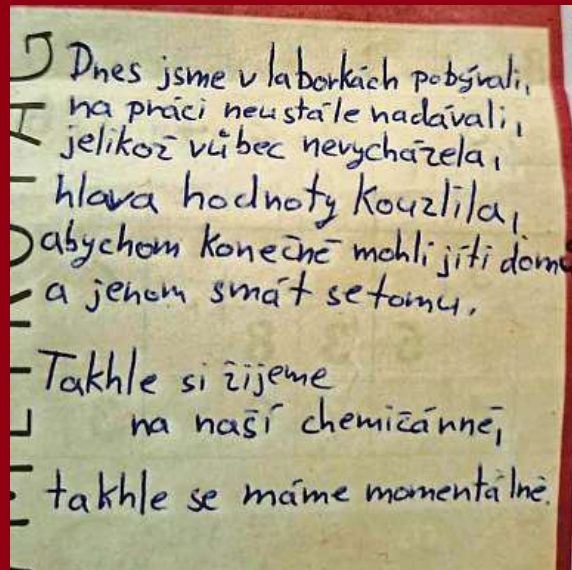 Dnes jsme v laborkách pobývali,
na práci neustále nadávali,
jelikož vůbec nevycházela,
hlava hodnoty kouzlila,
abychom konečně mohli jíti domů
a jenom smát se tomu.
Takhle si žijeme
na naší chemičánně,
takhle se máme momentálně.